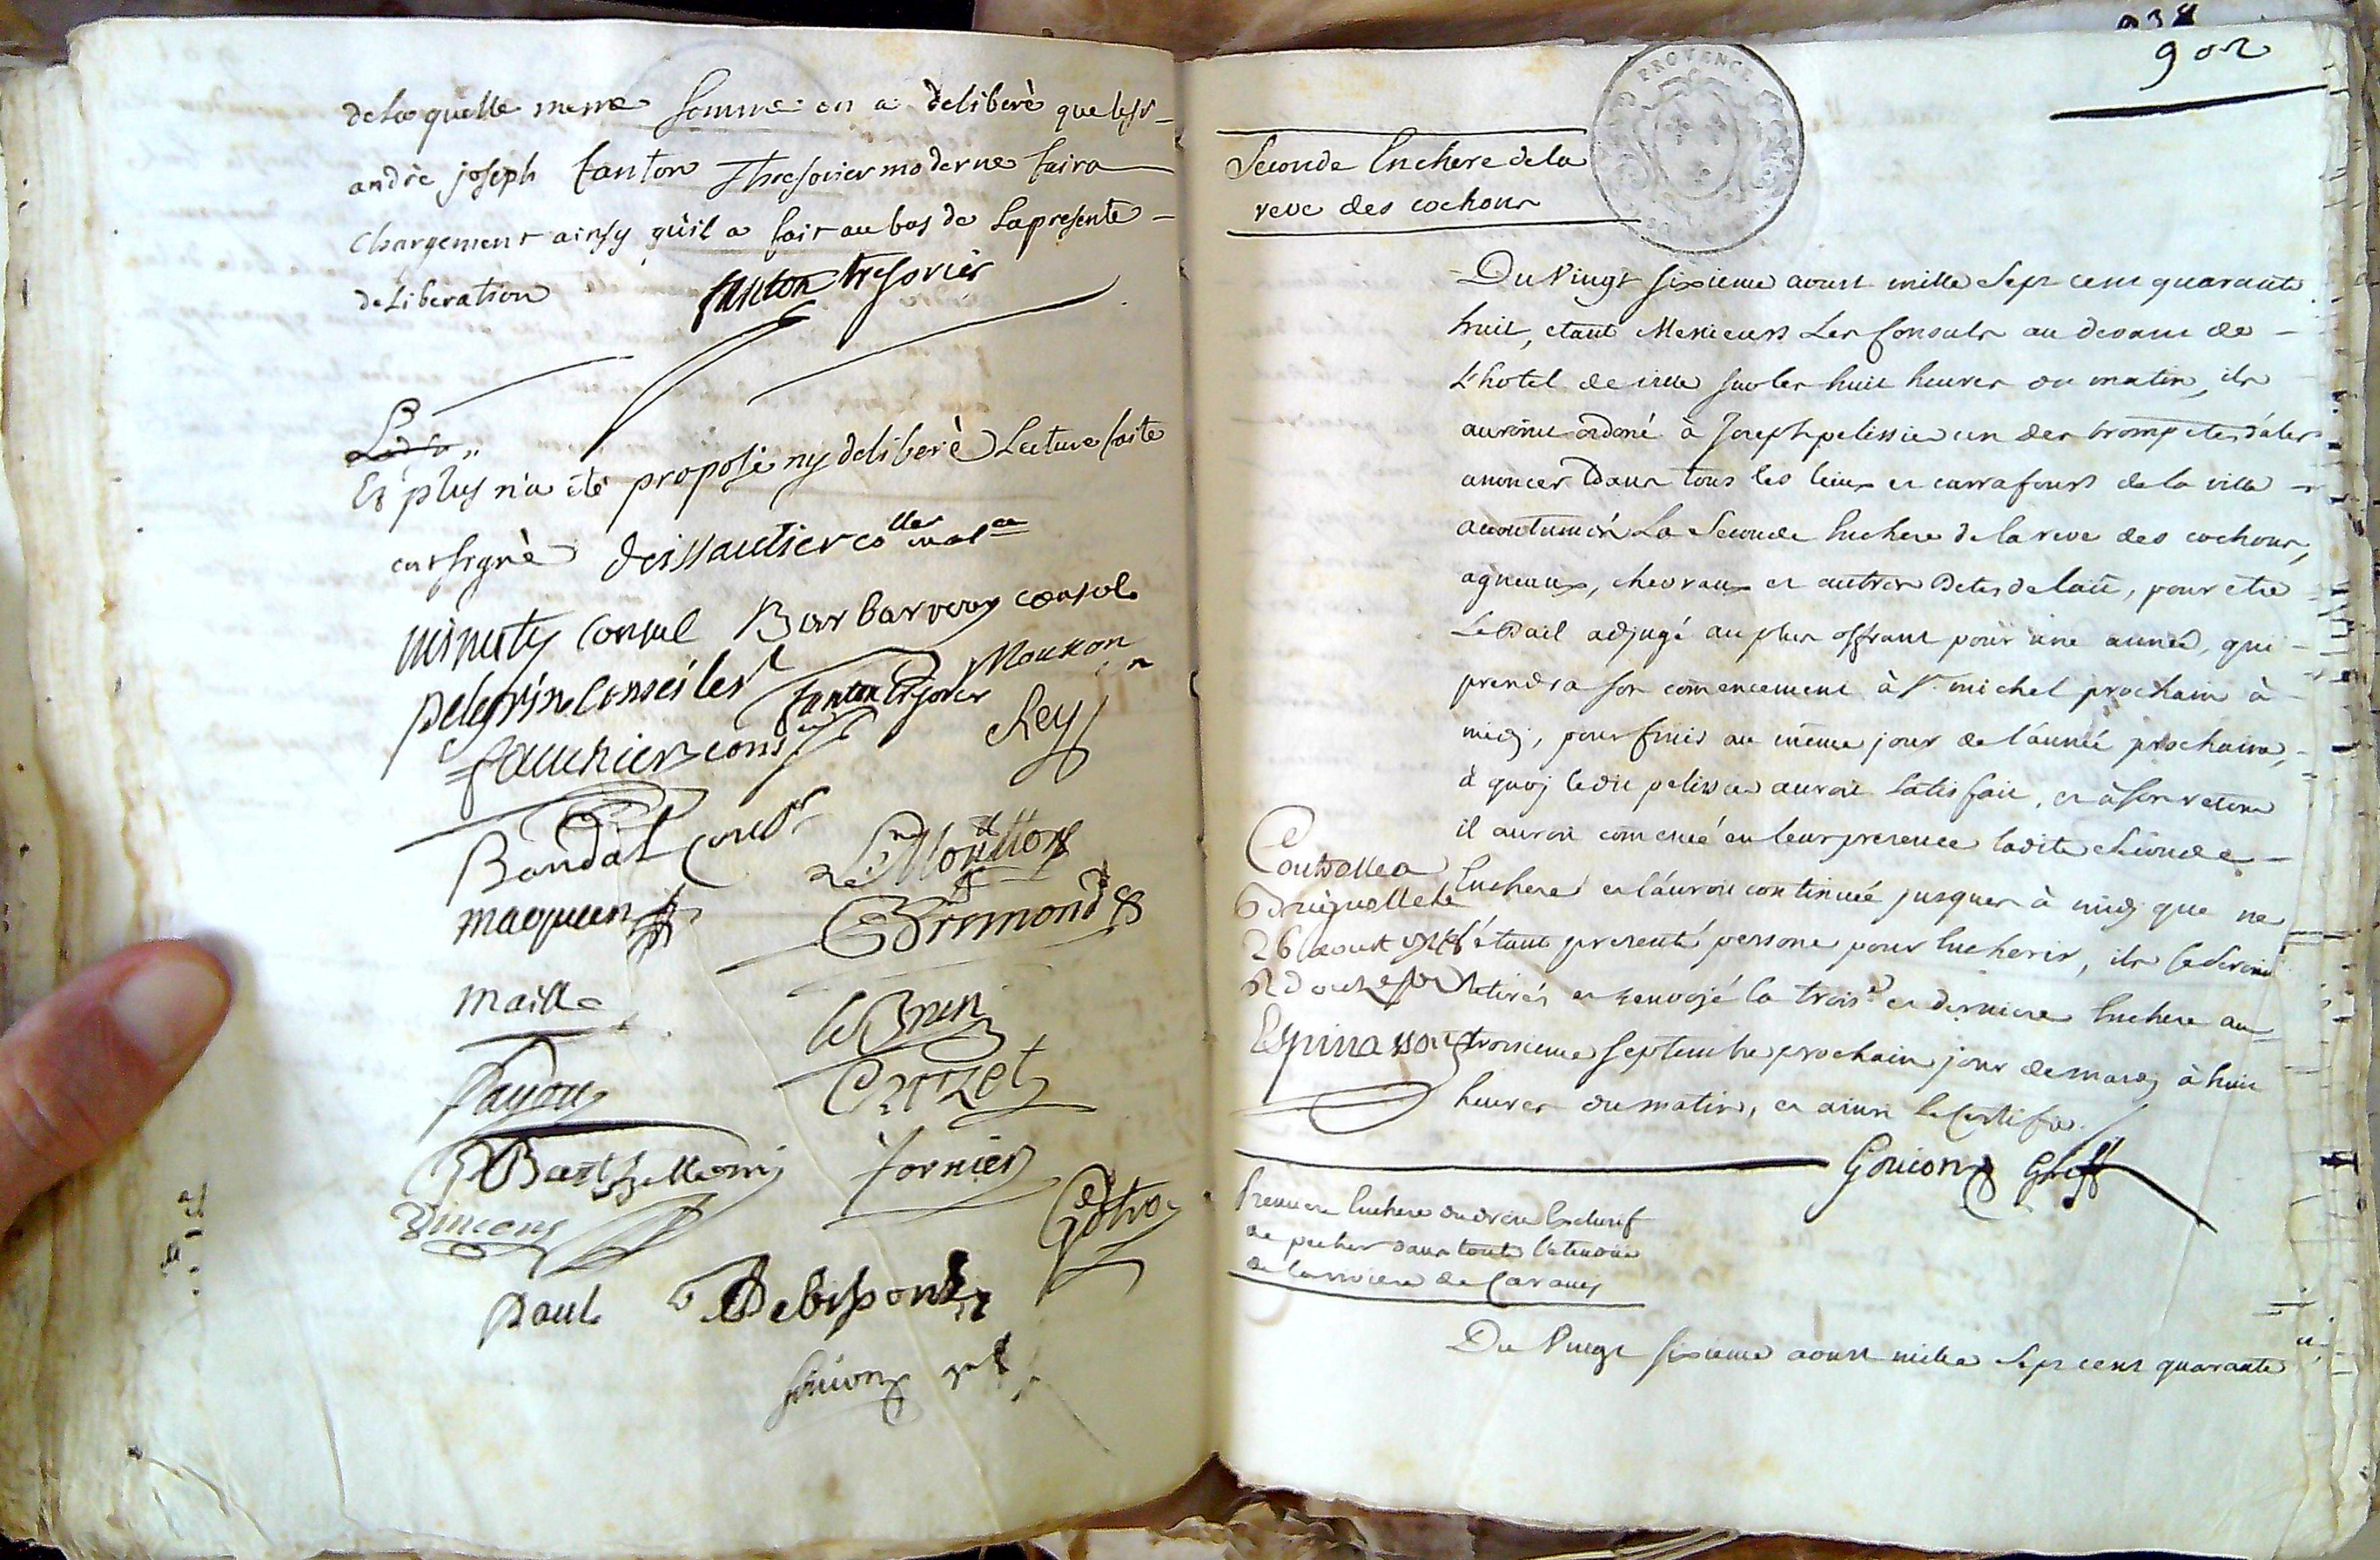 de laquelle meme somme on a deliberè que le sr
andrè joseph fanton Thresorier moderne faira
chargement ainsy qu'il a fait au bas de la presente
deliberation fanton tresorier
Et plus n'a été proposé ny deliberè Lecture faite
ont signè deissautier
minuty consul Barbarroux consul
pelegrin conseiler fanton tresorier Mouton
fauchier cons Rey
Bandol Moutton
maquan Bremond
maille le Brun
fayou Crozet
Barthellemi fornier
Vincens
Paul Debisson
Gouion gref
902
PROVENCE
Seconde Enchere de la
reve des cochons
Du Vingt sixieme aoust mille sept cent quarante
huit, etant Messieurs Les Consuls au devant de
L'hotel de ville sur les huit heures du matin, ils
auroint ordoné à Joseph pelissier un des trompetes d'aler
anoncer dans tous les lieux et carrafours de la ville
acoutumés La Seconde Enchere de la reve des cochons,
agneaux, chevraux et autres betes de lait, pour etre
Le Bail adjugé au plus offrant pour une année, qui
prendra son comencement à St michel prochain à
midj, pour finir au même jour de l'année prochaine,
à quoj ledit pelissier auroit satisfait, et à son retour
il auroit comencé en leur presence ladite seconde
Enchere et l'auroit continuée jusques à midj que ne
s'étant presenté persone pour Encherir, ils se seroint
retirés et renvojé la trois.e et derniere Enchere au
troisieme septembre prochain jour de mardj à huit
heures du matin, et ainsi le Certifie.
Gouion Greff
Controllé a
Brignolle le
26 aout 1748
R douze sols
Espinasson
Premiere Enchere du droit Exclusif
de pecher dans toute l'etendue
de la riviere de Caramy
Du Vingt sixieme aoust mille sept cent quarante